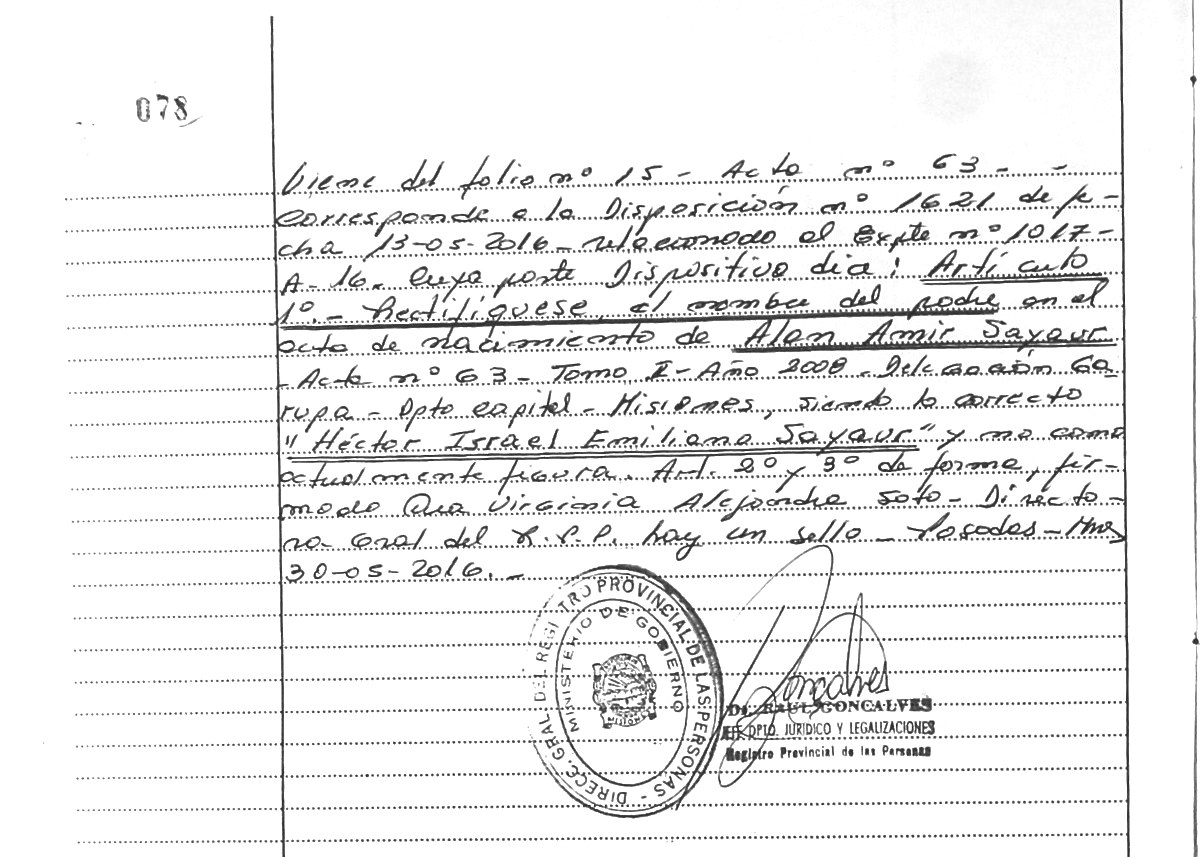 078
Viene del folio nº 15 - Acta nº 63 - -
Corresponde a la Disposición nº 1621 de fe-
cha 13-05-2016 - relacionado al Expte nº 1017 -
A - 16. Cuya parte Dispositiva dice: Artículo
1º.- Rectifíquese, el nombre del padre en el
acta de nacimiento de Alan Amir Sayaur
- Acta nº 63 - Tomo II - Año 2008 - Delegación Ga-
rupa - Dpto Capital - Misiones, siendo lo correcto
"Héctor Israel Emiliano Sayaur" y no como
actualmente figura. Art. 2º y 3º de forma, fir-
mado Dra Virginia Alejandra Soto - Directo-
ra Gral del R.P.P. hay un sello - Posadas - Mnes
30-05-2016. -
DIRECC. GRAL. DEL REGISTRO PROVINCIAL DE LAS PERSONAS -
MINISTERIO DE GOBIERNO
MISIONES
Goncalves
Dr. RAUL GONCALVES
JEFE DPTO. JURIDICO Y LEGALIZACIONES
Registro Provincial de las Personas